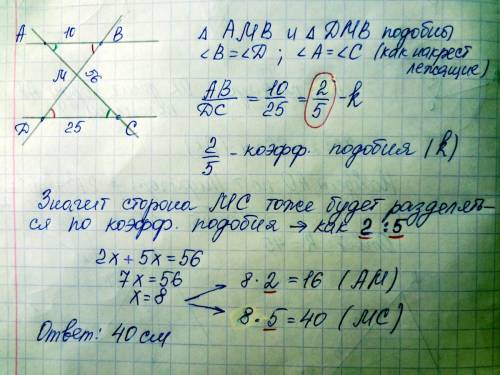 A 10 B
M 56
D 25 C
△ AMB и △ DMB подобны
∠B=∠D ; ∠A=∠C (как накрест
лежащие)
AB/DC = 10/25 = 2/5 - k
2/5 - коэфф. подобия (k)
Значит сторона MC тоже будет разделят-
ся по коэфф. подобия → как 2:5
2x+5x=56
7x=56
x=8
8·2=16 (AM)
8·5=40 (MC)
Ответ: 40 см